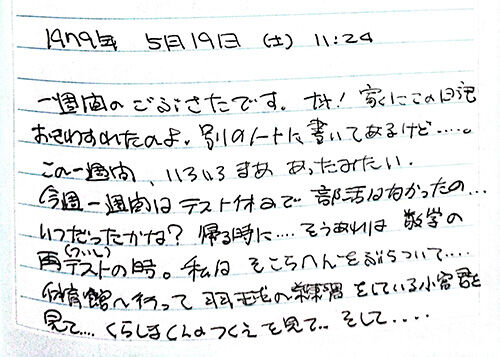 1979年 5月19日 (土) 11:24
一週間のごぶさたです。ナント! 家にこの日記
おきわすれたのよ。別のノートに書いてあるけど……。
この一週間、いろいろまああったみたい.
今週一週間はテスト休みで部活はなかったの…
いつだったかな? 帰る時に…. そうあれは数学の
再(ついし)テストの時。私はそこらへんをぶらついて….
体育館へ行って羽毛の練習をしている小宮君を
見て…. くらしまくんのつくえを見て.. そして‥‥.